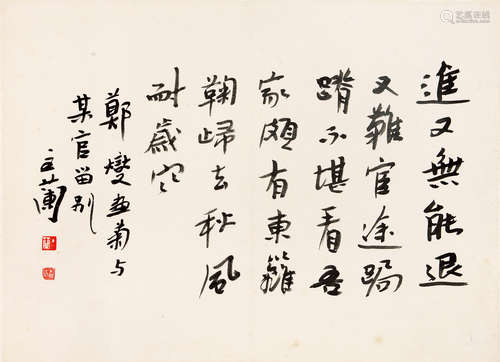 進又無能退
又難官途跼
蹐不堪看吾
家頗有東籬
鞠歸去秋風
耐歲寒
鄭燮畫菊与
某官留别